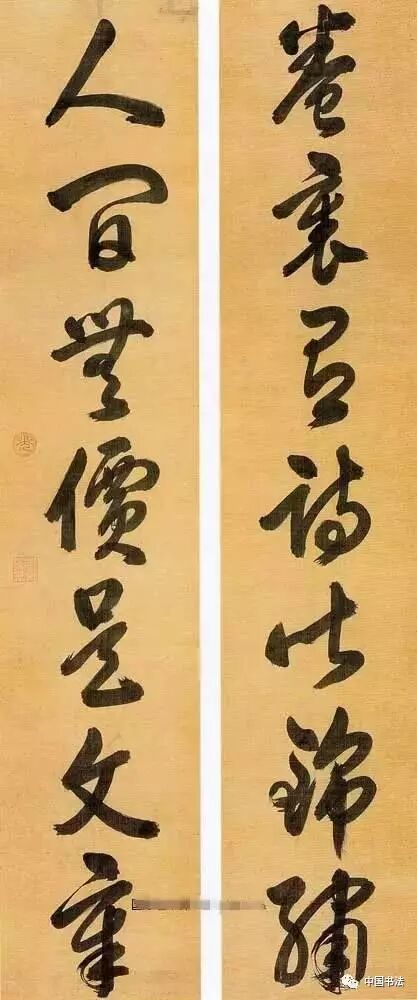 卷裏有詩比錦繡
人間無價是文章
中国书法